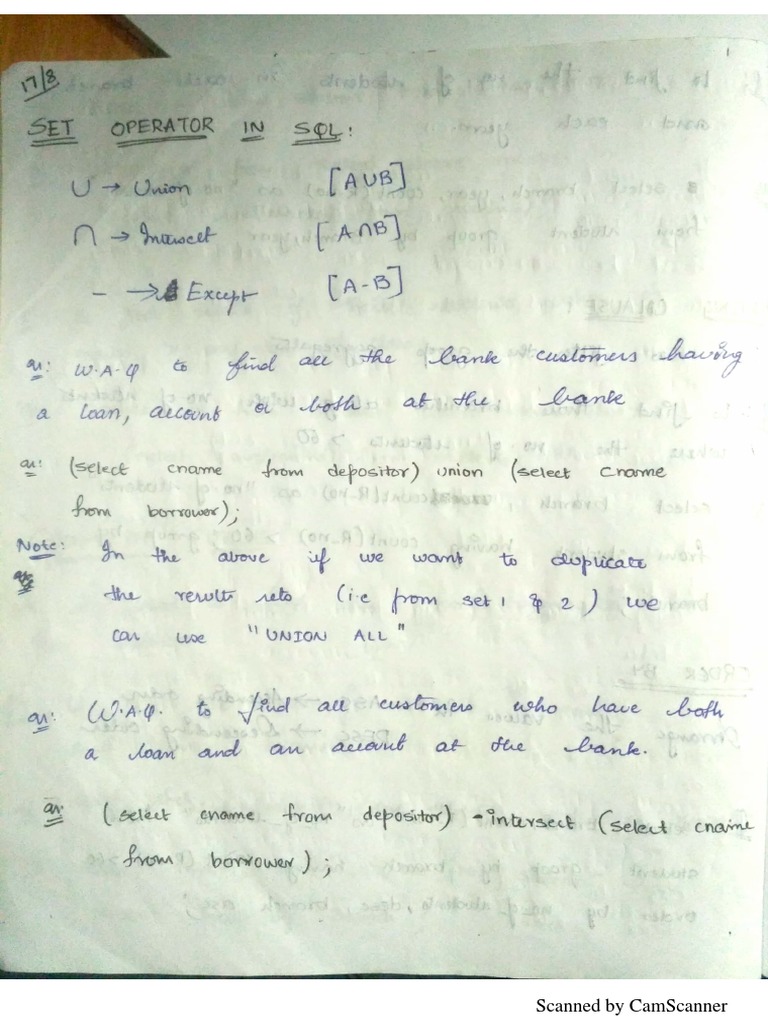 17/8
1
SET OPERATOR IN SQL:
∪ → Union [A∪B]
∩ → Intersect [A∩B]
− → Except [A-B]
qn: W.A.Q to find all the bank customers having
a loan, account or both at the bank
an: (select cname from depositor) union (select cname
from borrower);
Note: In the above if we want to duplicate
the results sets (i.e from set 1 & 2) we
can use "UNION ALL"
qn: W.A.Q. to find all customers who have both
a loan and an account at the bank.
an: (select cname from depositor) intersect (select cname
from borrower);
Scanned by CamScanner